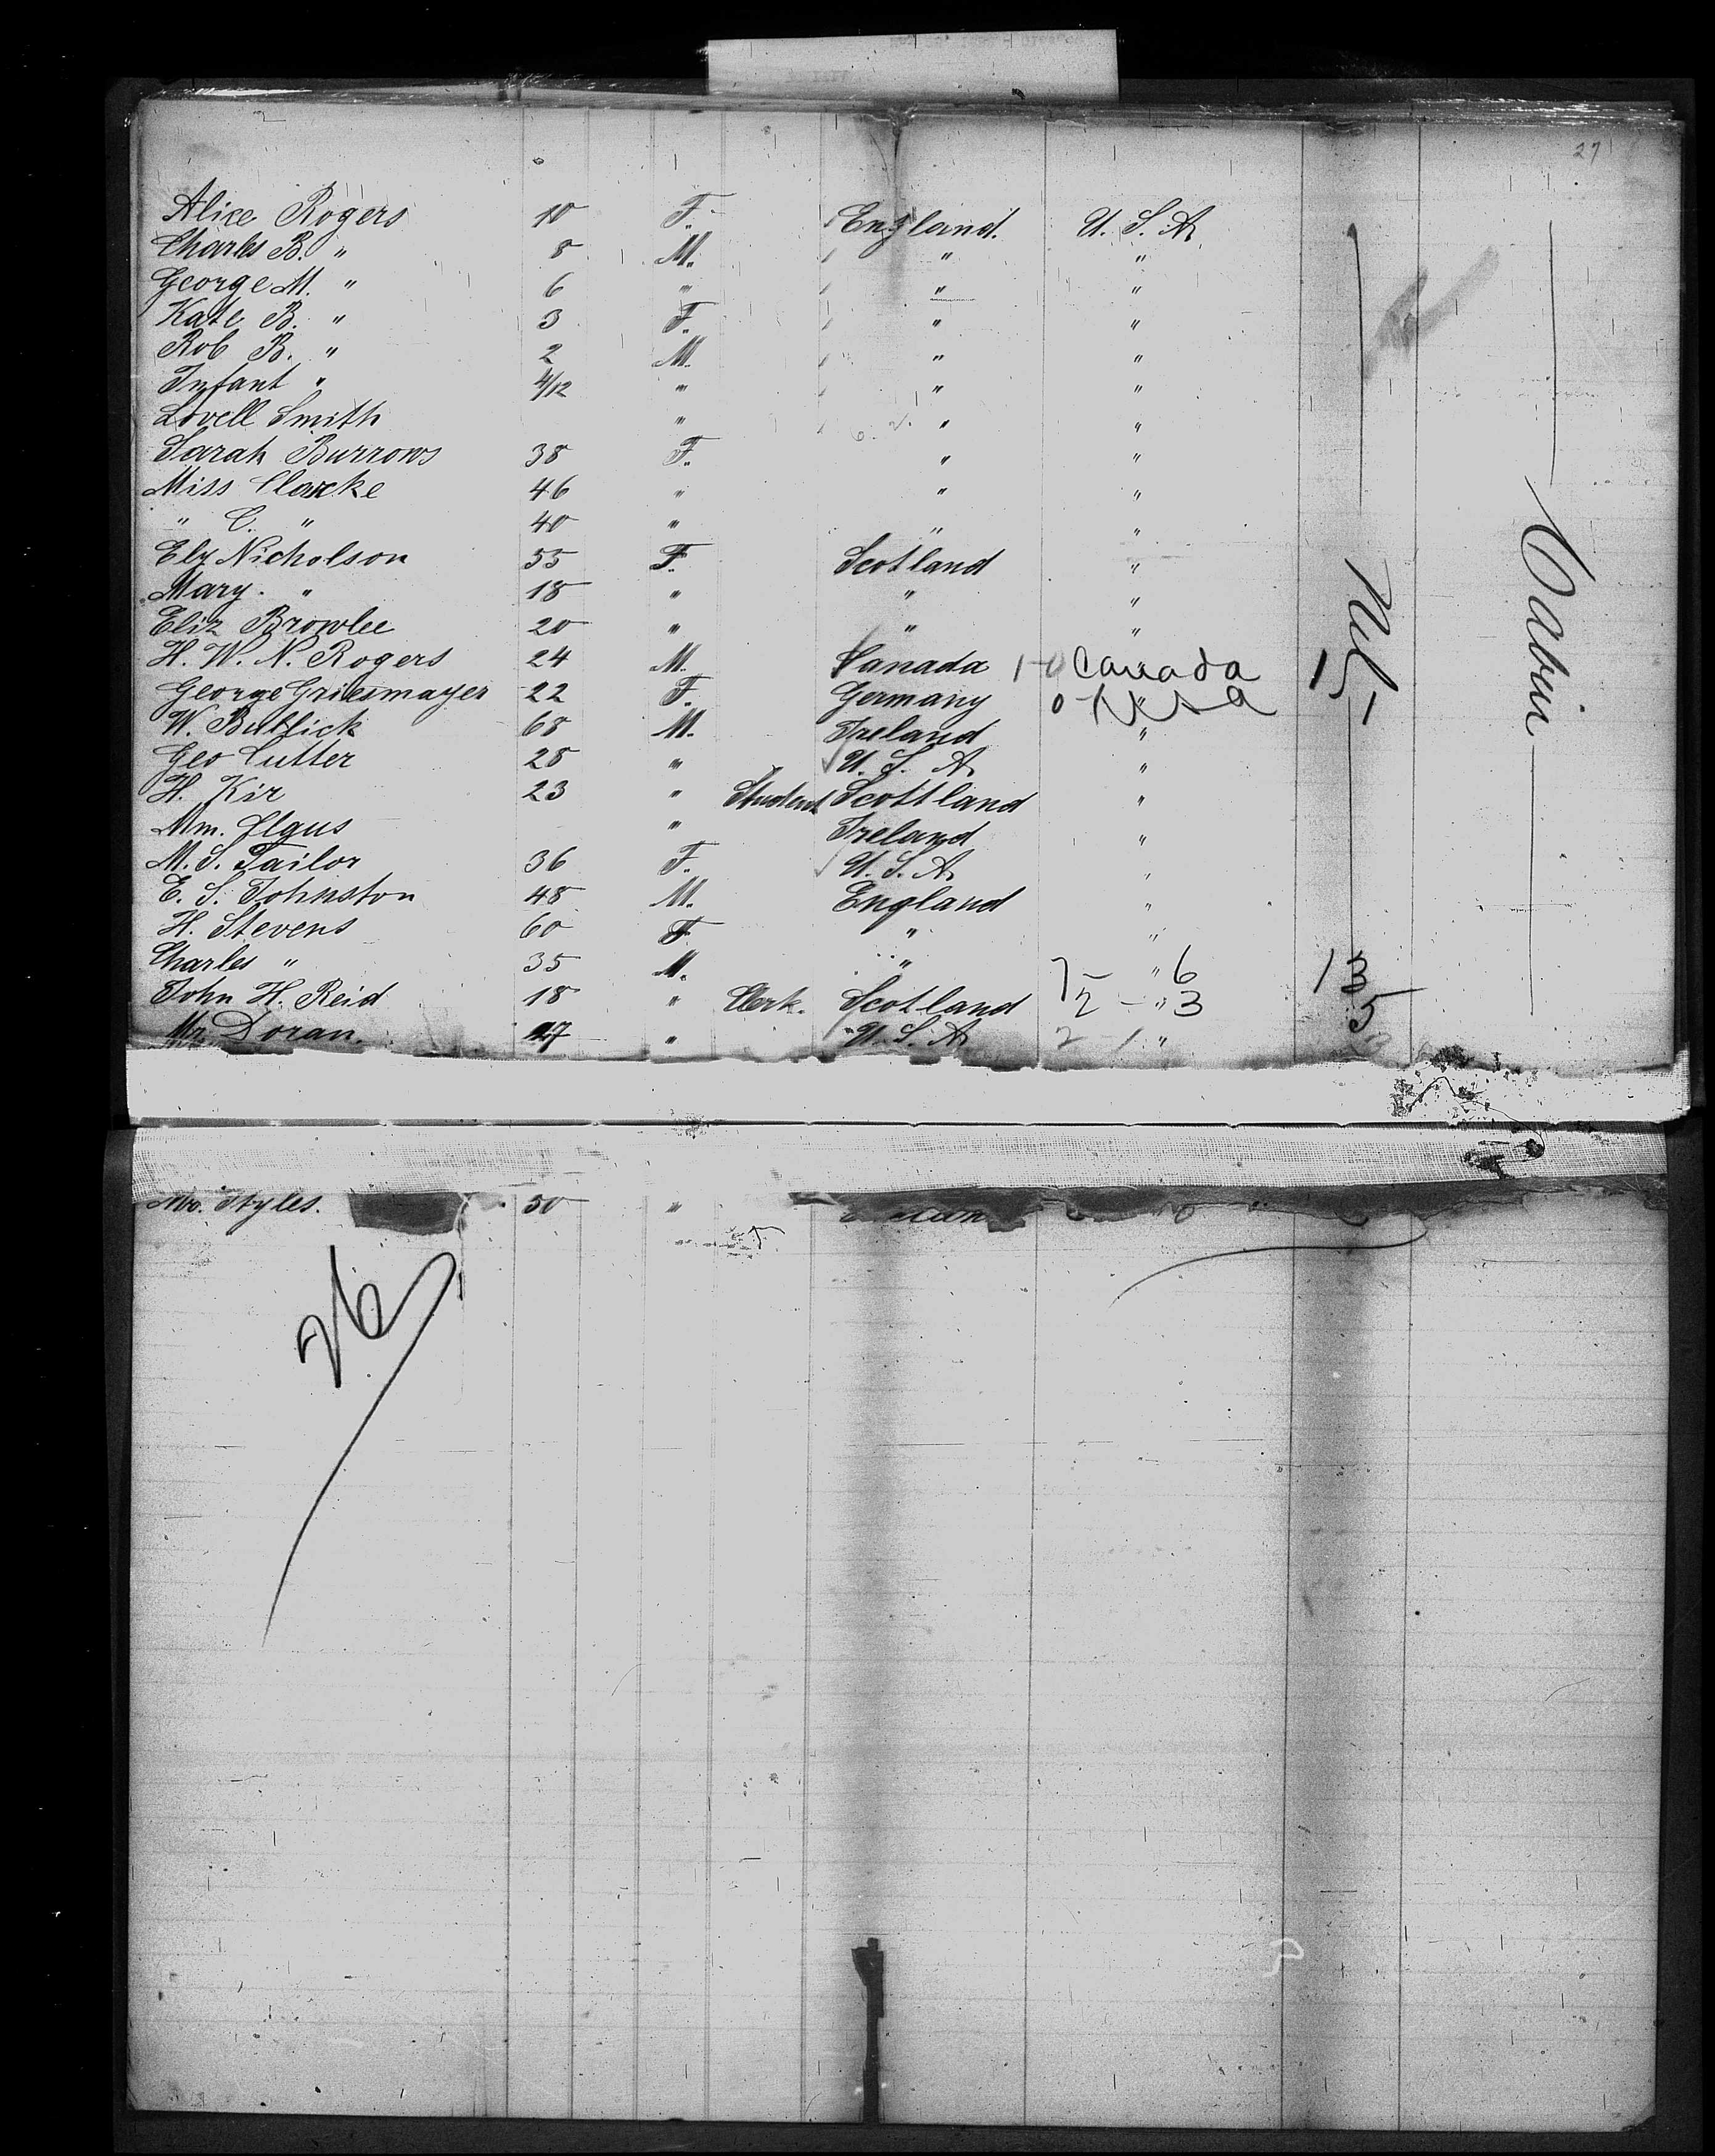 27
Alice Rogers 10 F. England. U. S. A.
Charles B. " 8 M. " "
George M. " 6 " " "
Kate B. " 3 F. " "
Rob B. " 2 M. " "
Infant " 4/12 " " "
Lovell Smith " " "
Sarah Burrows 38 F. " "
Miss Clarke 46 " " "
" C. " 40 " " "
Elz Nicholson 55 F. Scotland "
Mary. " 18 " " "
Eliz Browlee 20 " " "
H. W. N. Rogers 24 M. Canada 1-0 Canada 1
George Griesmayer 22 F. Germany 0- USA
W. Bullick 68 M. Ireland "
Geo Cutter 28 " U. S. A. "
H. Kir 23 " Student Scottland "
Mm. Ilgus " Ireland "
M. S. Tailor 36 F. U. S. A. "
E. S. Johnston 48 M. England "
H. Stevens 60 F. " "
Charles " 35 M. " 7- " 6 13
John H. Reid 18 " Clerk. Scotland 2 - " 3 5
Mr. Doran. 47 " U. S. A. 2 - 1 "
Cabin
Styles. 50 "
26